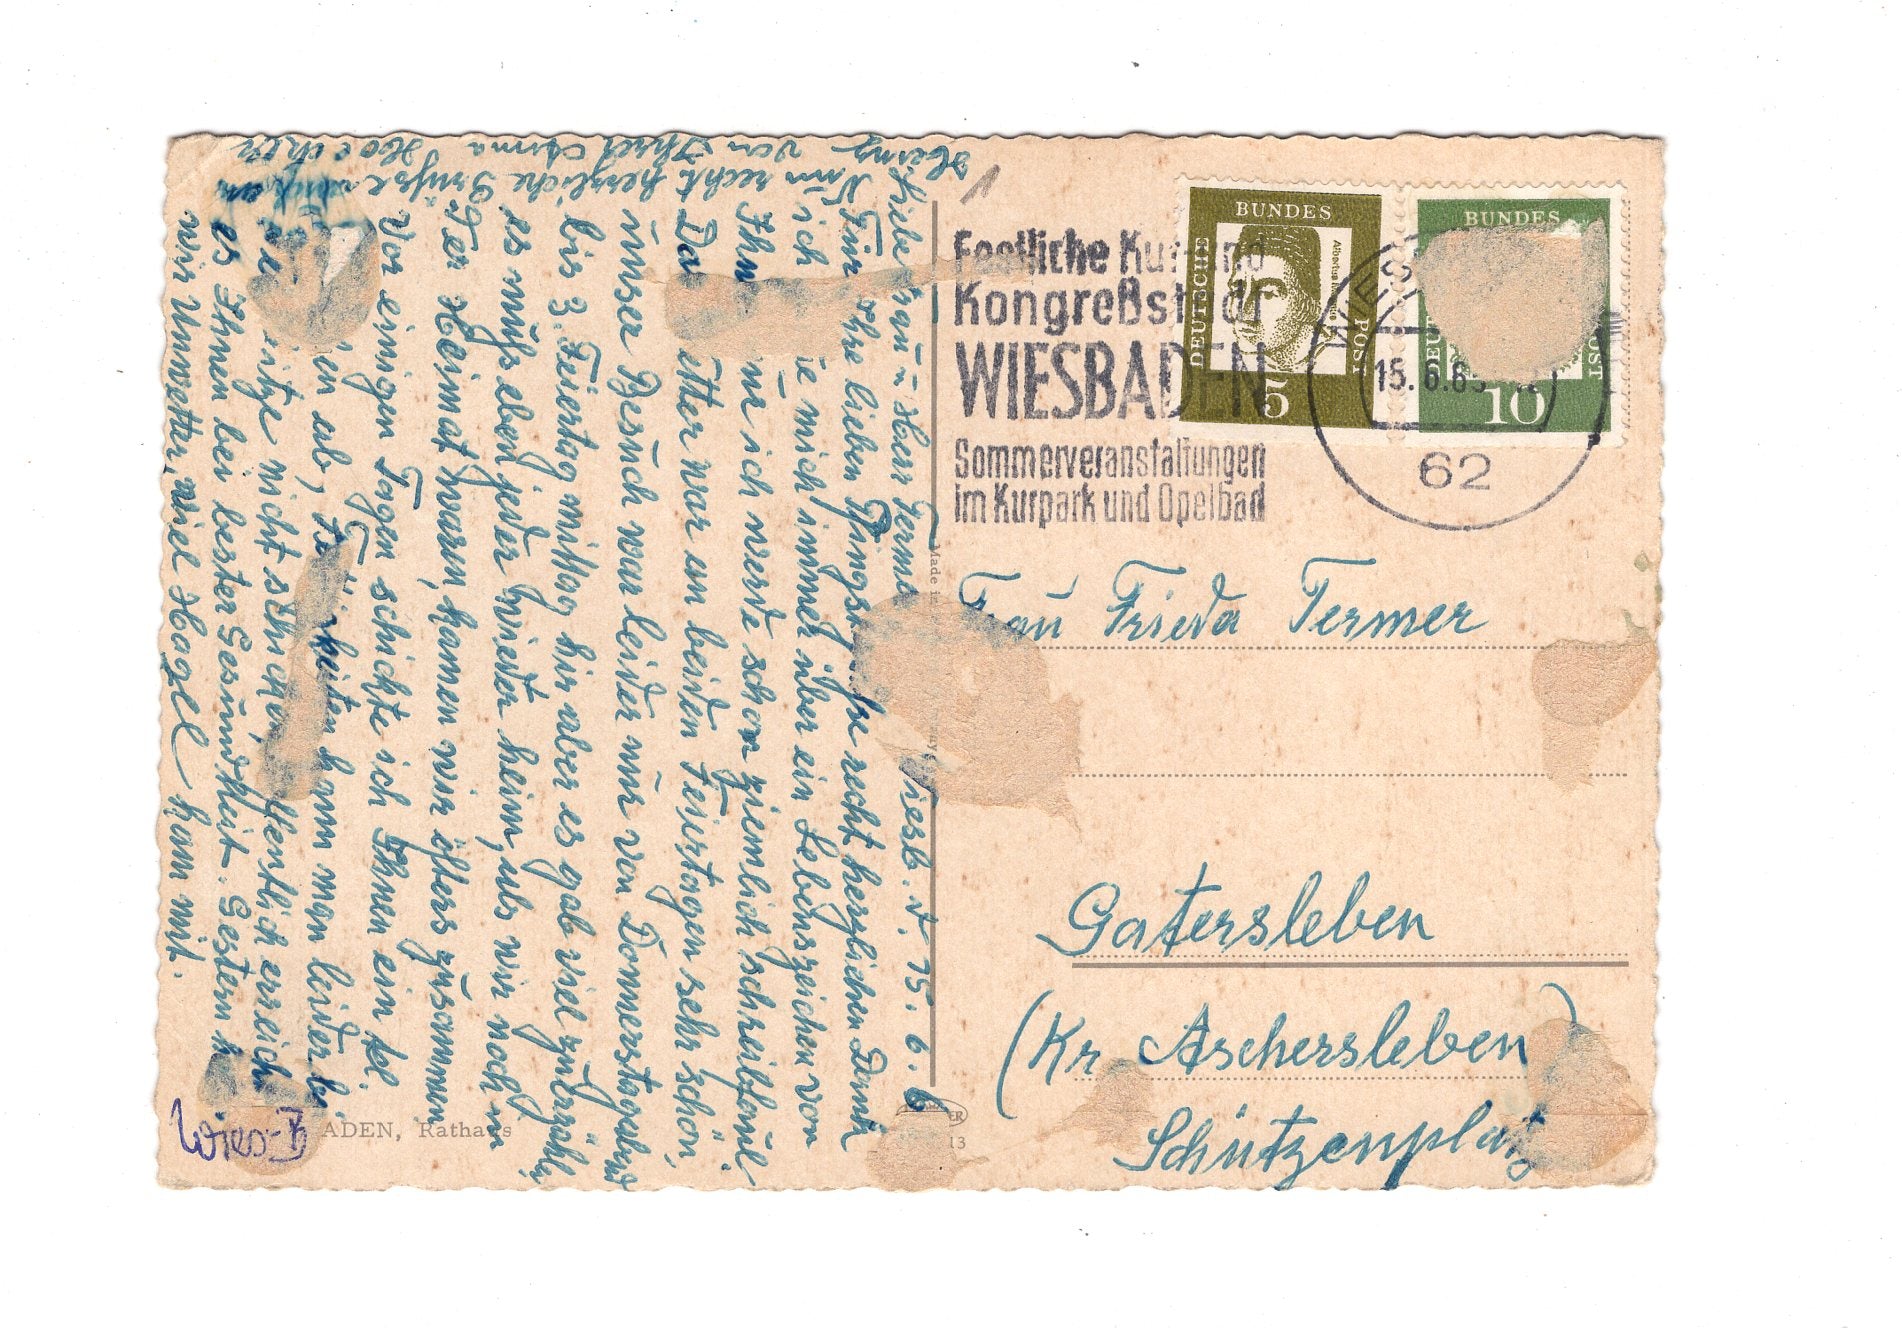 Wiesb. d. 15.6.6
Liebe Frau u Herr Termer
Für Ihre lieben Pfingstgrüße recht herzlichen Dank
ich mich immer über ein Lebenszeichen von
Ihnen ich werde schon ziemlich schreibfaul
Das Wetter war an beiden Feiertagen sehr schön,
unser Besuch war leider nur von Donnerstagabend
bis 3. Feiertag mittag hir aber es gab viel zu erzählen
es muß eben jeder wieder heim, als wir noch in
der Heimat waren, kamen wir öfters zusammen,
Vor einigen Tagen schickte ich Ihnen ein kl.
ab, Tätigkeiten kann man leider
nicht schicken hoffentlich erreicht
es Ihnen bei bester Gesundheit. Gestern
wir Unwetter, viel Hagel kam mit.
Nun recht herzliche Grüße
von Ihrer Anna
Wies-B
ADEN, Rathaus
Made in
13
Festliche Kur- und
Kongreßstadt
WIESBADEN
Sommerveranstaltungen
im Kurpark und Opelbad
BUNDES
DEUTSCHE
POST
Albertus Magnus
5
BUNDES
POST
10
15.6.6
62
Frau Frieda Termer
Gatersleben
(Kr Aschersleben)
Schützenplatz